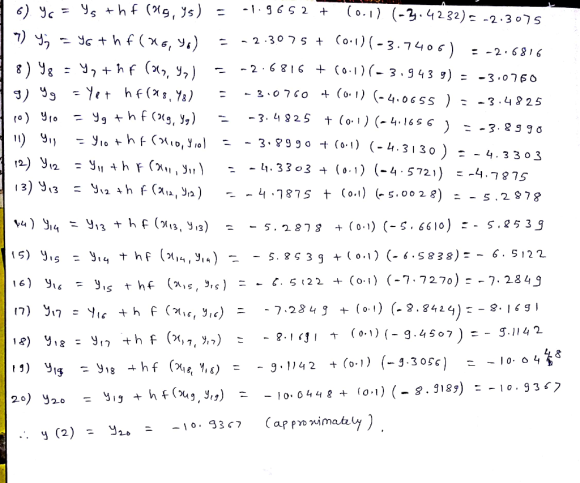 6) y₆ = y₅ + hf (x₅, y₅) = -1.9652 + (0.1) (-3.4232) = -2.3075
7) y₇ = y₆ + hf (x₆, y₆) = -2.3075 + (0.1)(-3.7406) = -2.6816
8) y₈ = y₇ + hf (x₇, y₇) = -2.6816 + (0.1)(-3.9439) = -3.0760
9) y₉ = y₈ + hf(x₈, y₈) = -3.0760 + (0.1)(-4.0655) = -3.4825
10) y₁₀ = y₉ + hf (x₉, y₉) = -3.4825 + (0.1)(-4.1656) = -3.8990
11) y₁₁ = y₁₀ + hf (x₁₀, y₁₀) = -3.8990 + (0.1) (-4.3130) = -4.3303
12) y₁₂ = y₁₁ + hf (x₁₁, y₁₁) = -4.3303 + (0.1) (-4.5721) = -4.7875
13) y₁₃ = y₁₂ + hf (x₁₂, y₁₂) = -4.7875 + (0.1) (-5.0028) = -5.2878
14) y₁₄ = y₁₃ + hf (x₁₃, y₁₃) = -5.2878 + (0.1) (-5.6610) = -5.8539
15) y₁₅ = y₁₄ + hf (x₁₄, y₁₄) = -5.8539 + (0.1) (-6.5838) = -6.5122
16) y₁₆ = y₁₅ + hf (x₁₅, y₁₅) = -6.5122 + (0.1) (-7.7270) = -7.2849
17) y₁₇ = y₁₆ + hf (x₁₆, y₁₆) = -7.2849 + (0.1) (-8.8424) = -8.1691
18) y₁₈ = y₁₇ + hf (x₁₇, y₁₇) = -8.1691 + (0.1) (-9.4507) = -9.1142
19) y₁₉ = y₁₈ + hf (x₁₈, y₁₈) = -9.1142 + (0.1) (-9.3056) = -10.0448
20) y₂₀ = y₁₉ + hf (x₁₉, y₁₉) = -10.0448 + (0.1) (-8.9189) = -10.9367
∴ y(2) = y₂₀ = -10.9367 (approximately).